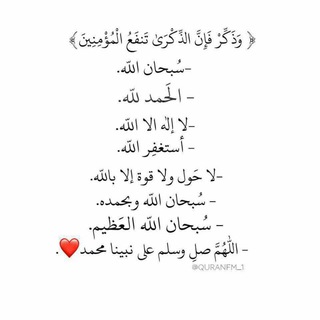 ﴿ وَذَكِّرْ فَإِنَّ الذِّكْرَىٰ تَنفَعُ الْمُؤْمِنِينَ ﴾
-سُبحان الله.
- الحَمد لله.
-لا إلٰه الا الله.
- أستغفِر الله.
-لا حَول ولا قوة إلا بالله.
- سُبحان الله وبحمده.
- سُبحان الله العَظيم.
- اللّٰهُمَّ صلِ وسلم على نبينا محمد❤️.
@QURANFM_1